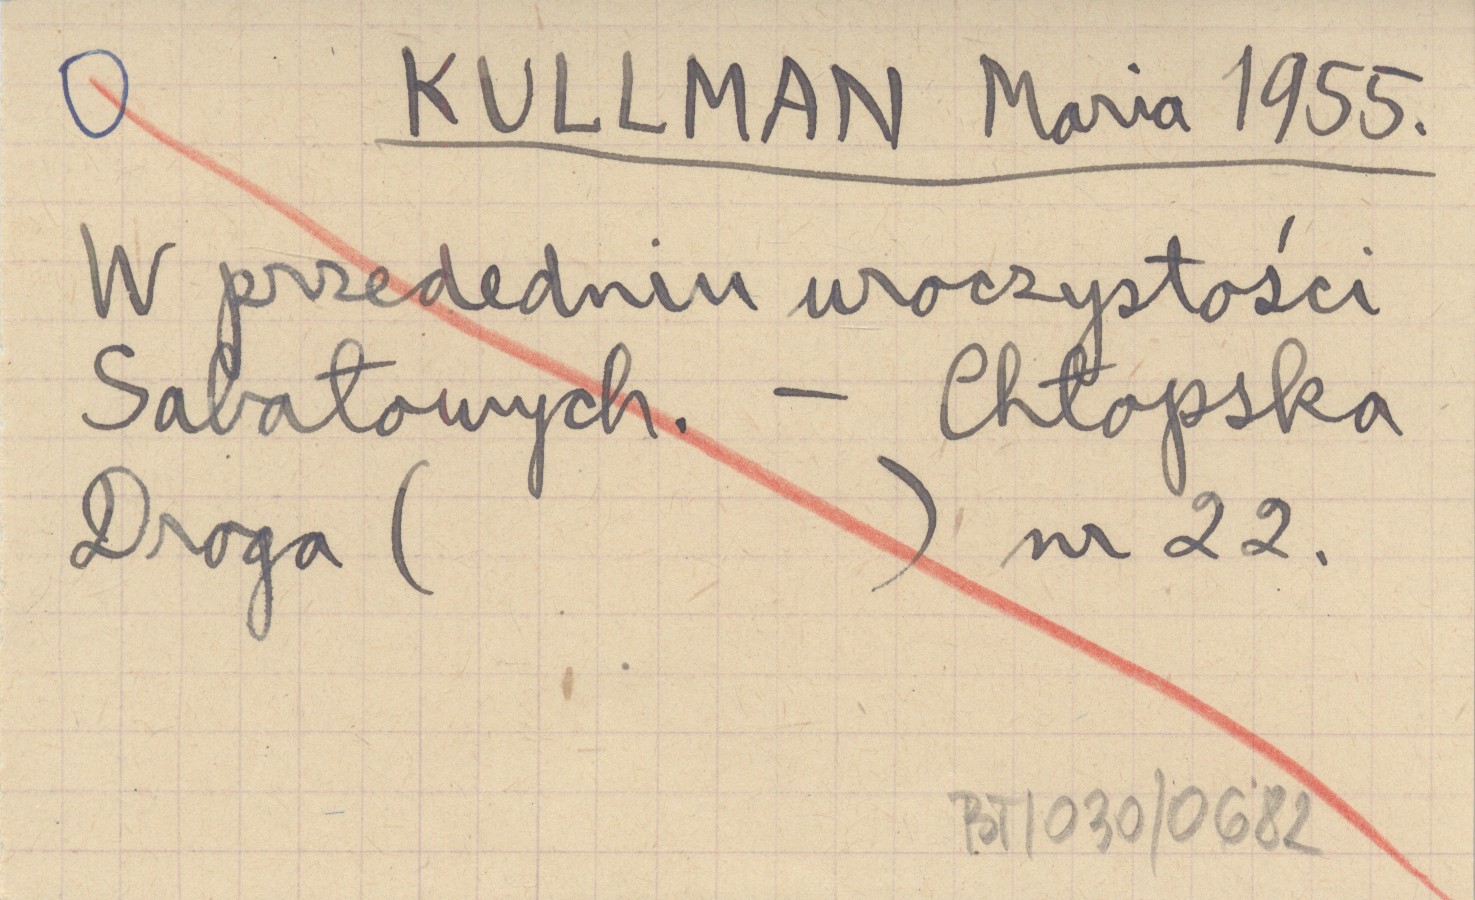 O KULLMAN Maria 1955.
W przededniu uroczystości
Sabałowych. - Chłopska
Droga ( ) nr 22.
BT/030/0682